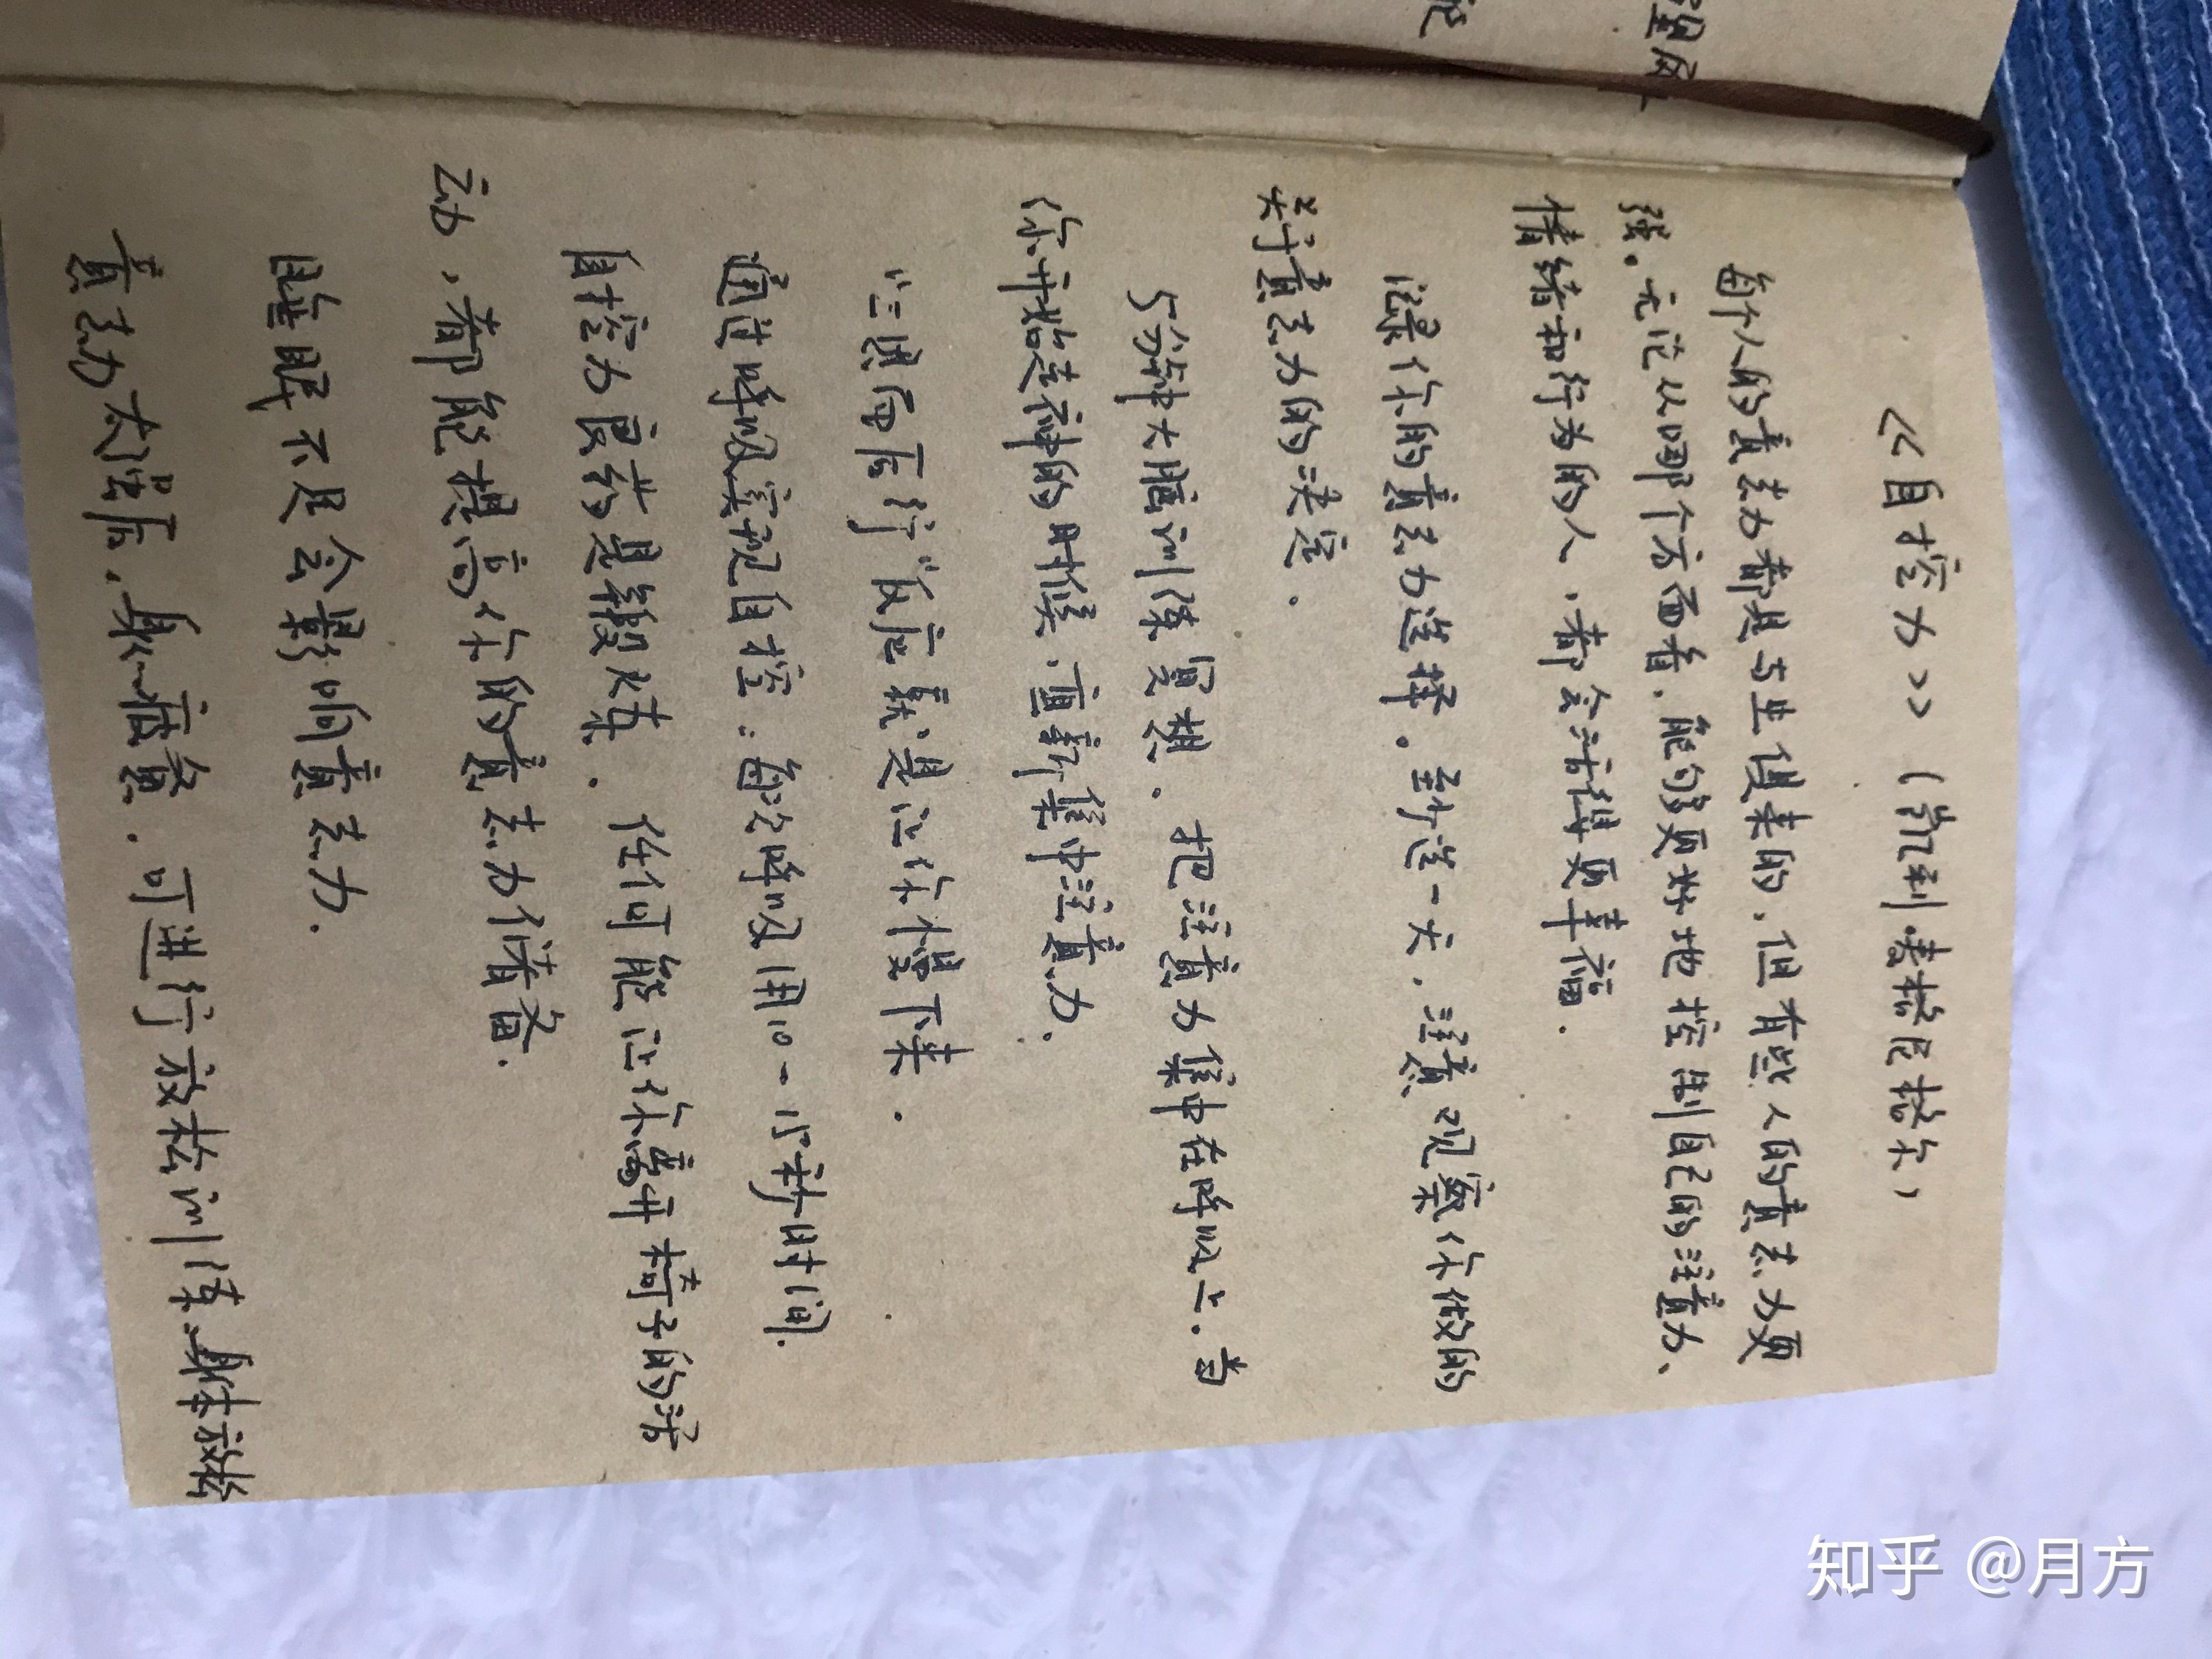 《自控力》（凯利麦格尼格尔）
每个人的意志力都是与生俱来的，但有些人的意志力更
强。无论从哪个方面看，能够更好地控制自己的注意力、
情绪和行为的人，都会活得更幸福．
记录你的意志力选择。至少选一天，注意观察你做的
关于意志力的决定．
5分钟大脑训练冥想．把注意力集中在呼吸上．当
你开始走神的时候，重新集中注意力．
"三思而后行"反应就是让你慢下来．
通过呼吸实现自控：每次呼吸用10-15秒时间.
自控力良药是锻炼．任何能让你离开椅子的活
动，都能提高你的意志力储备.
睡眠不足会影响意志力.
意志力太强后，身心疲惫．可进行放松训练.身体放松
知乎 @月方